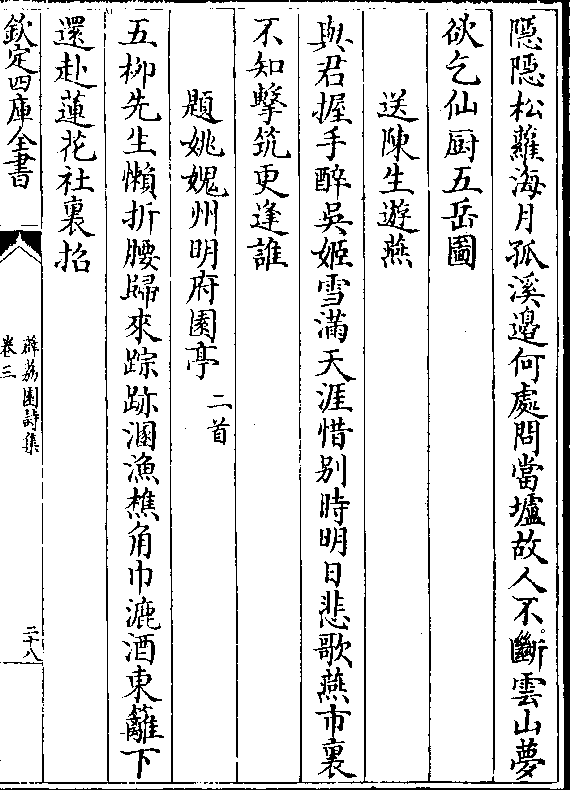 隱隱松蘿海月孤溪邉何處問當壚故人不斷雲山夢
欲乞仙厨五岳圖
送陳生遊燕
與君握手醉吳姬雪滿天涯惜别時明日悲歌燕市裏
不知擊筑更逢誰
題姚媿州明府園亭 二首
五柳先生懶折腰歸來踪跡溷漁樵角巾漉酒東籬下
還赴蓮花社裏招
欽定四庫全書
薜荔園詩集
卷三
二十八